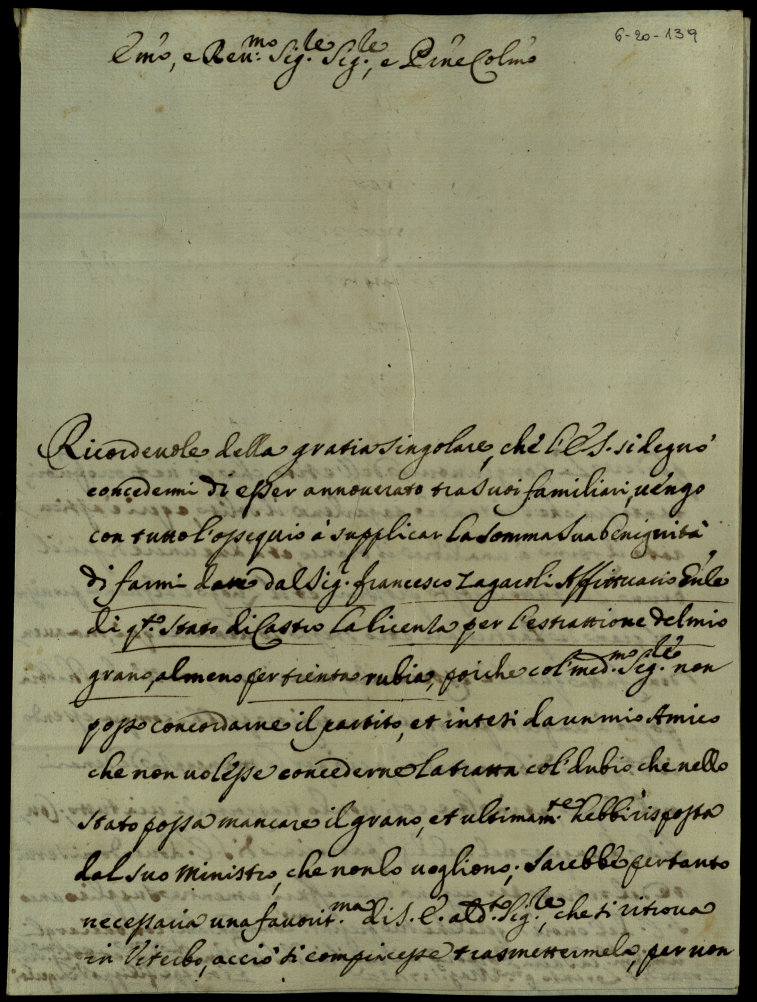 6-20-139
Emo, e Reu:mo Sig.le Sig.le, e Pñe Colmo
Ricordeuole della gratia singolare, che l'E.S. si degnò
concedermi di esser annouerato tra suoi familiari, uengo
con tutto l'ossequio à supplicar la somma sua benignità
di farmi dare dal Sig. francesco Zagaroli Affittuario Gñle
di q.to Stato di Castro la licenza per l'estrattione del mio
grano, almeno per trienta rubia, poiche col' med.mo Sig.le non
posso concordarne il partito, et intesi da un mio Amico
che non uolesse concederne la tratta col' dubio che nello
Stato possa mancare il grano, et ultimam.te hebbi risposta
dal suo Ministro, che non lo uogliono; Sarebbe pertanto
necessaria una fauorit.ma di S. E. al d.to Sig.le, che si ritroua
in Viterbo, acciò si compiacesse trasmettermela, per non